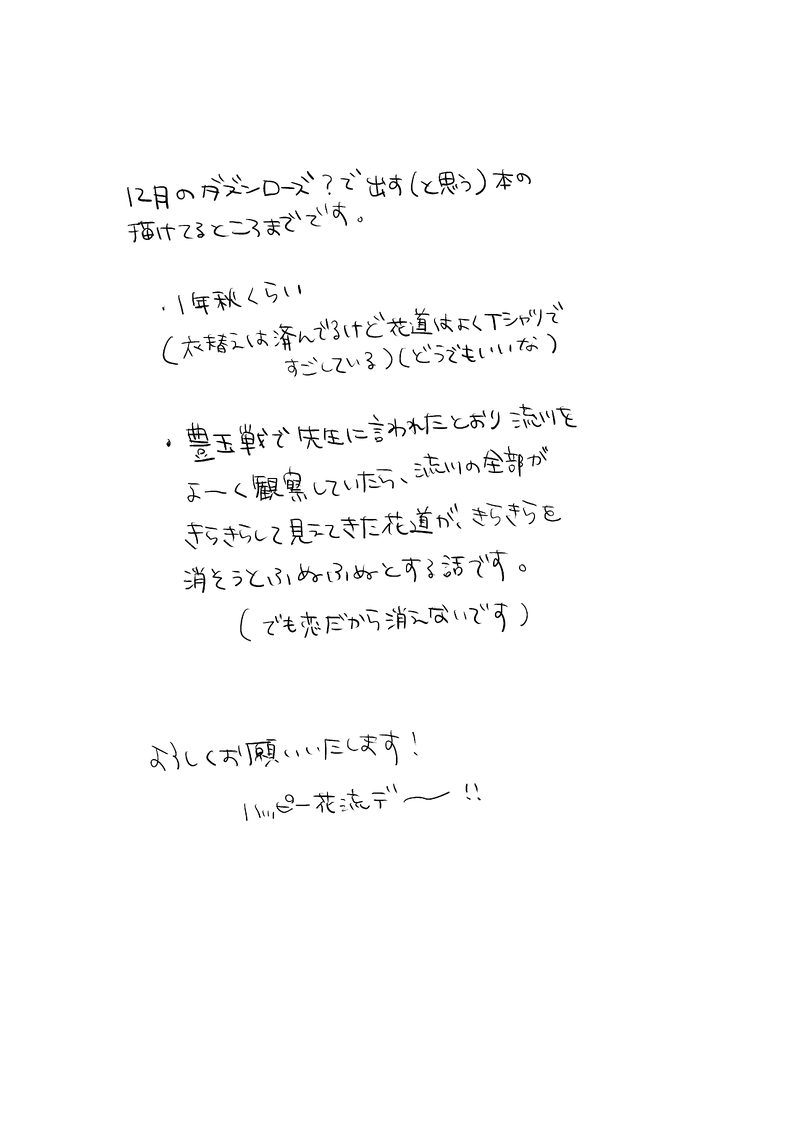 12月のダズンローズ?で出す(と思う)本の
描けてるところまでです。
・1年秋くらい
(衣替えは済んでるけど花道はよくTシャツで
すごしている)(どうでもいいな)
・豊玉戦で先生に言われたとおり流川を
よーく観察していたら、流川の全部が
きらきらして見えてきた花道が、きらきらを
消そうとふぬふぬとする話です。
(でも恋だから消えないです)
よろしくお願いいたします!
ハッピー花流デ〜!!